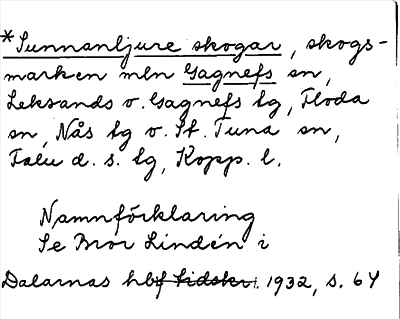 *Sunnanljure skogar, skogs-
marken mln Gagnefs sn,
Leksands o. Gagnefs tg, Floda
sn, Nås tg o. St. Tuna sn,
Falu d. s. tg, Kopp. l.
Namnförklaring
Se Bror Lindén i
Dalarnas hbf tidskr. 1932, s. 64